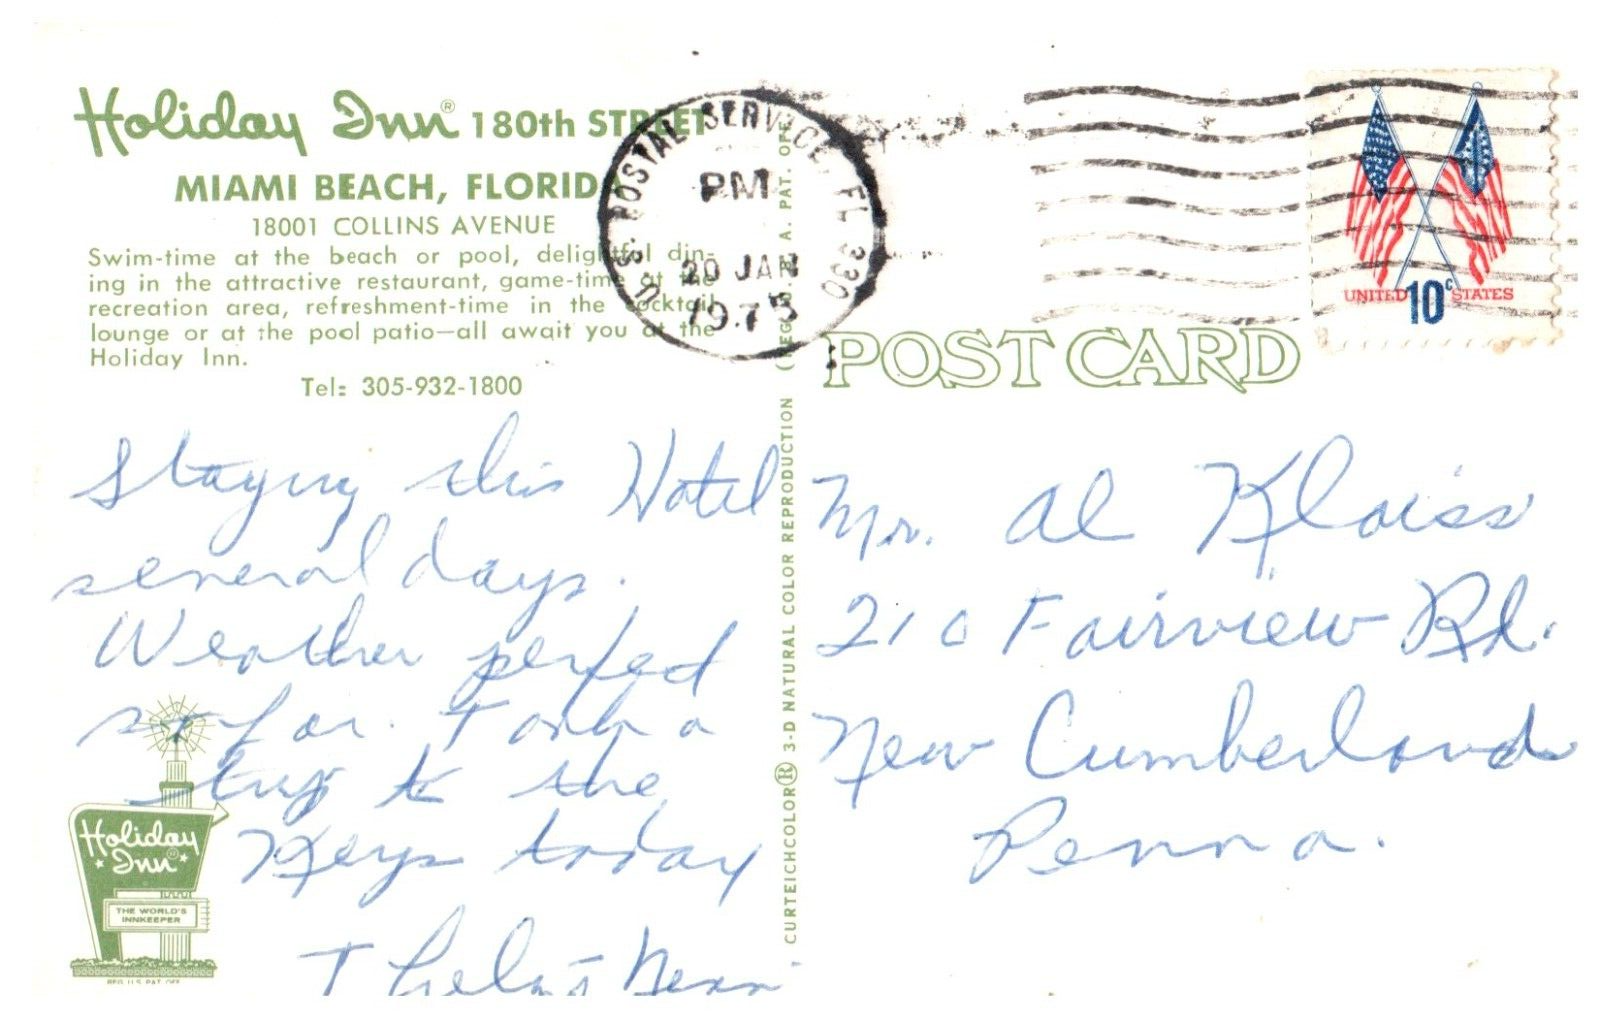 Holiday Inn® 180th STREET
MIAMI BEACH, FLORIDA
18001 COLLINS AVENUE
Swim-time at the beach or pool, delightful din-
ing in the attractive restaurant, game-time at the
recreation area, refreshment-time in the cocktail
lounge or at the pool patio—all await you at the
Holiday Inn.
Tel: 305-932-1800
Staying this Hotel
several days.
Weather perfect
so far. Took a
trip to the
Keys today
Thelma
Holiday
Inn®
THE WORLD'S
INNKEEPER
REG. U.S. PAT. OFF.
CURTEICHCOLOR® 3-D NATURAL COLOR REPRODUCTION (REG. U.S.A. PAT. OFF.
U.S. POSTAL SERVICE, FL 330
PM
20 JAN
1975
UNITED 10c STATES
POST CARD
Mr. Al Kloiss
210 Fairview Rd.
New Cumberland
Penna.